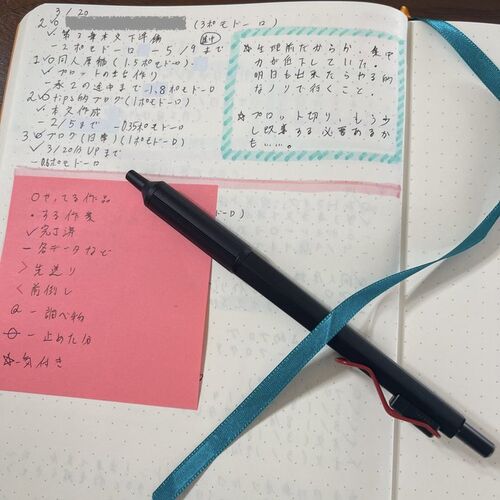 3/20
2.〇 (3ポモドーロ)
✓第2章本文下準備 途中
-2ポモドーロ - 5/9まで
1.〇同人原稿(1.5ポモドーロ)
✓プロットのまち作り
-承2の途中まで -1.8ポモドーロ
2.〇tips的ブログ(1ポモドーロ)
✓本文作成
-2/5まで -0.35ポモドーロ
3.〇ブログ(日常)(1ポモドーロ)
✓3/20分UPまで
-0.6ポモドーロ
☆生理前だからか、集中
力が低下していた。
明日も出来たらやる的
なノリで行くこと。
☆プロット切り、もう少
し改善する必要あるか
も……。
〇やってる作品
・する作業
✓完了済
－各データなど
＞先送り
＜前倒し
Q－調べ物
⦵－止めた分
☆－気付き
ドーロ)